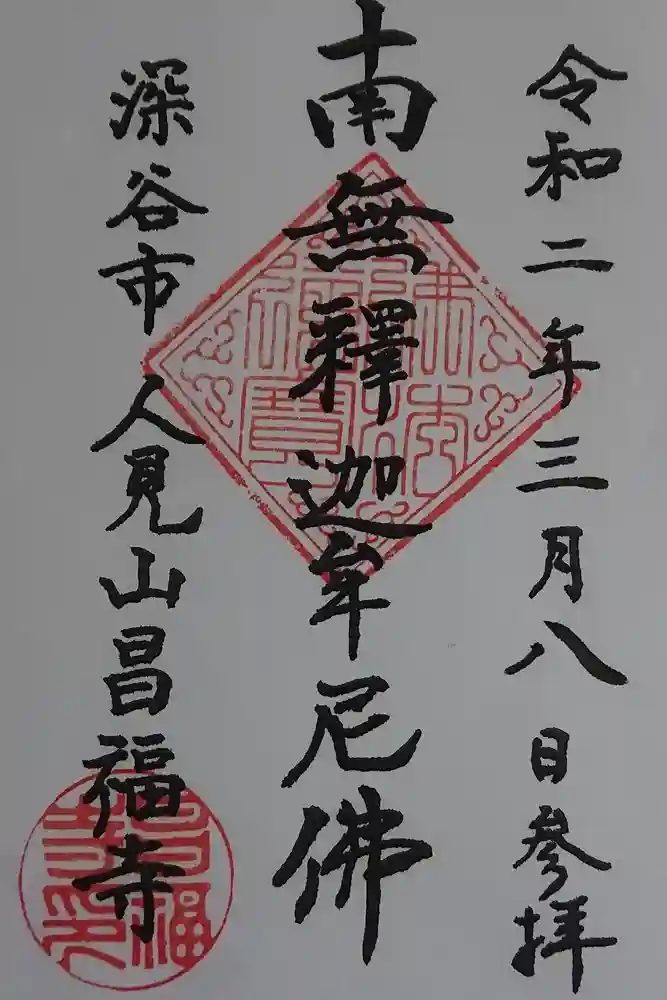 令和二年三月八日参拝
南無釋迦牟尼佛
深谷市人見山昌福寺
佛法僧寶
昌福寺印